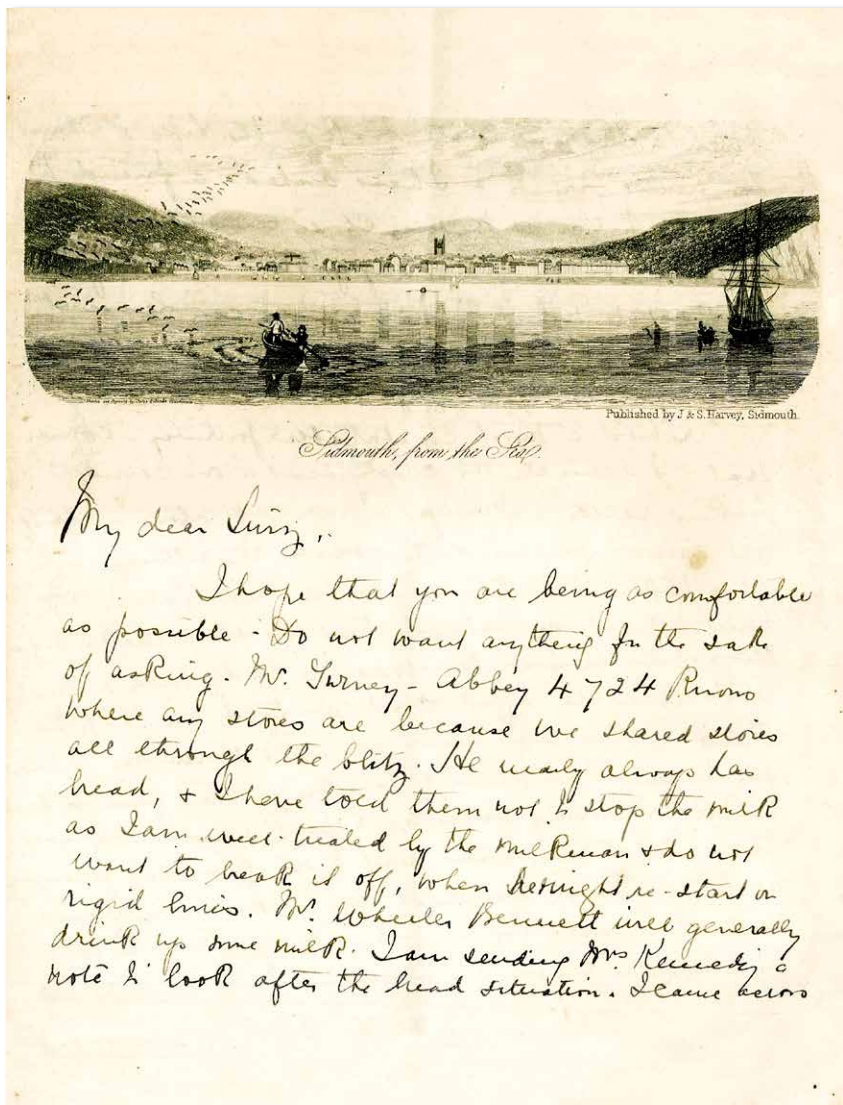 Published by J & S. Harvey, Sidmouth.
Sidmouth, from the Sea.
My dear
I hope that you are being as comfortable
as possible - Do not want anything for the sake
of asking. Mr. Turney - Abbey 4724 knows
where any stores are because we shared stores
all through the blitz. He nearly always has
bread, & I have told them not to stop the milk
as I am well-treated by the milkman & do not
want to break it off, when he might re-start on
rigid lines. Mr. Wheeler Bennett will generally
drink up some milk. I am sending Mrs Kennedy a
note to look after the bread situation. I came across